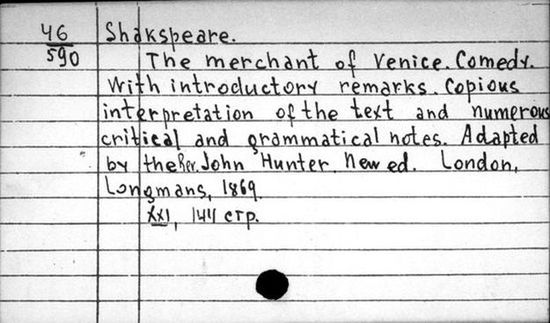 46
590
Shakspeare.
The merchant of Venice. Comedy.
With introductory remarks. Copious
interpretation of the text and numerous
critical and grammatical notes. Adapted
by the Rev. John Hunter. New ed. London,
Longmans, 1869.
XXI, 144 стр.